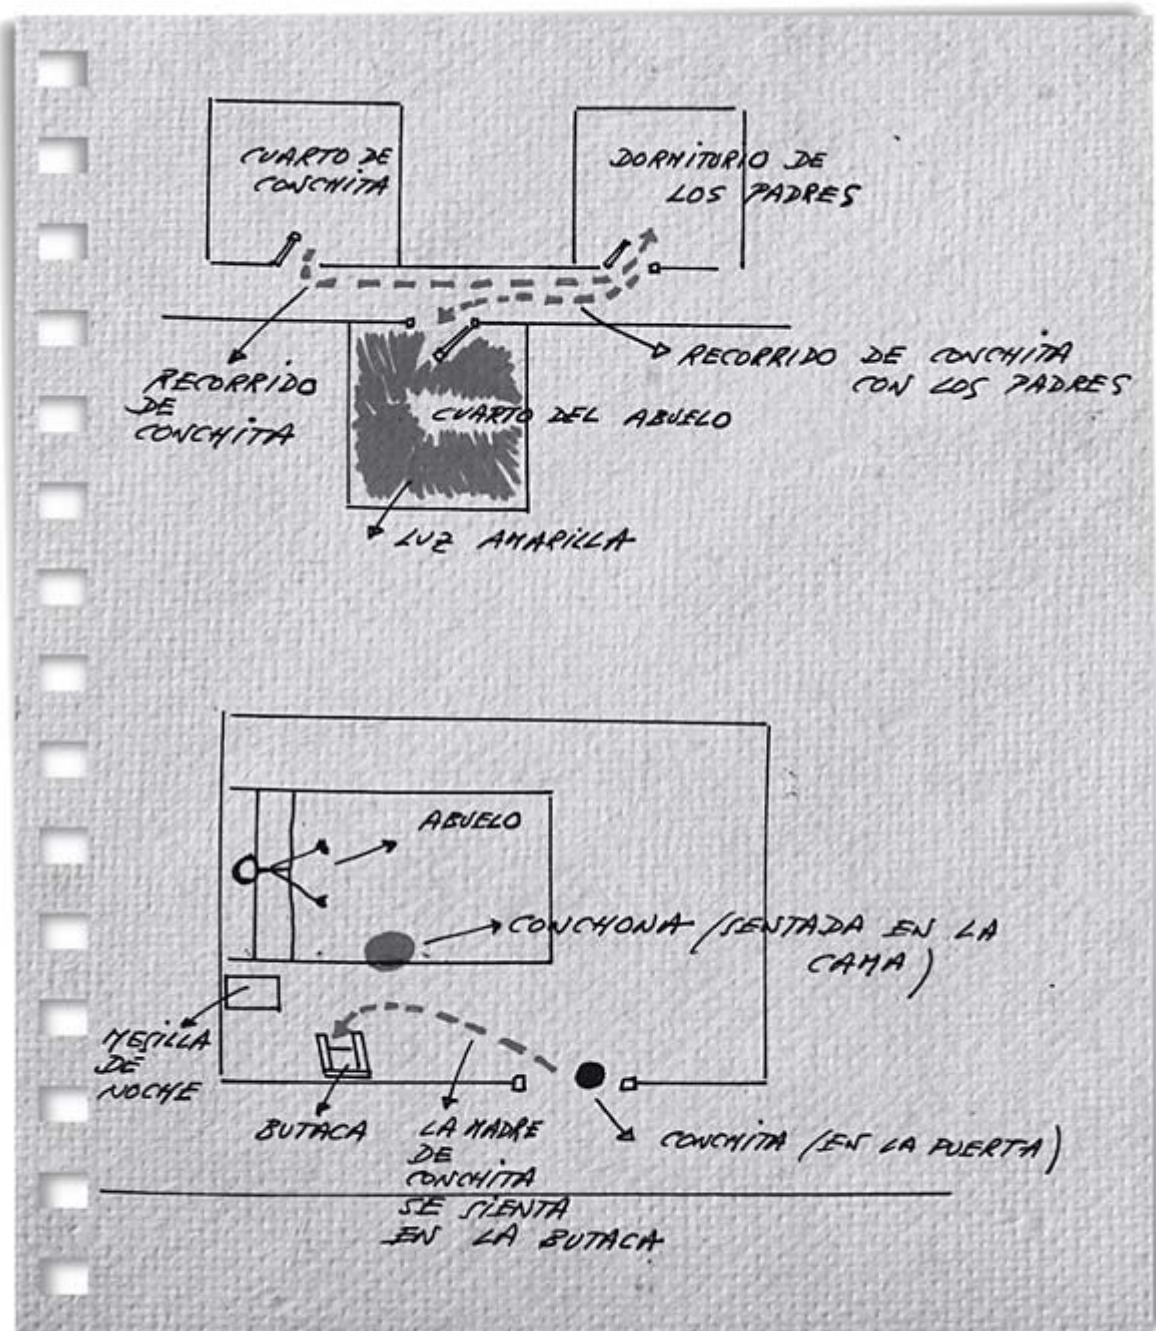 CUARTO DE
CONCHITA
DORMITORIO DE
LOS PADRES
RECORRIDO
DE
CONCHITA
RECORRIDO DE CONCHITA
CON LOS PADRES
CUARTO DEL ABUELO
LUZ AMARILLA
ABUELO
CONCHONA (SENTADA EN LA
CAMA)
MESILLA
DE
NOCHE
BUTACA
LA MADRE
DE
CONCHITA
SE SIENTA
EN LA BUTACA
CONCHITA (EN LA PUERTA)